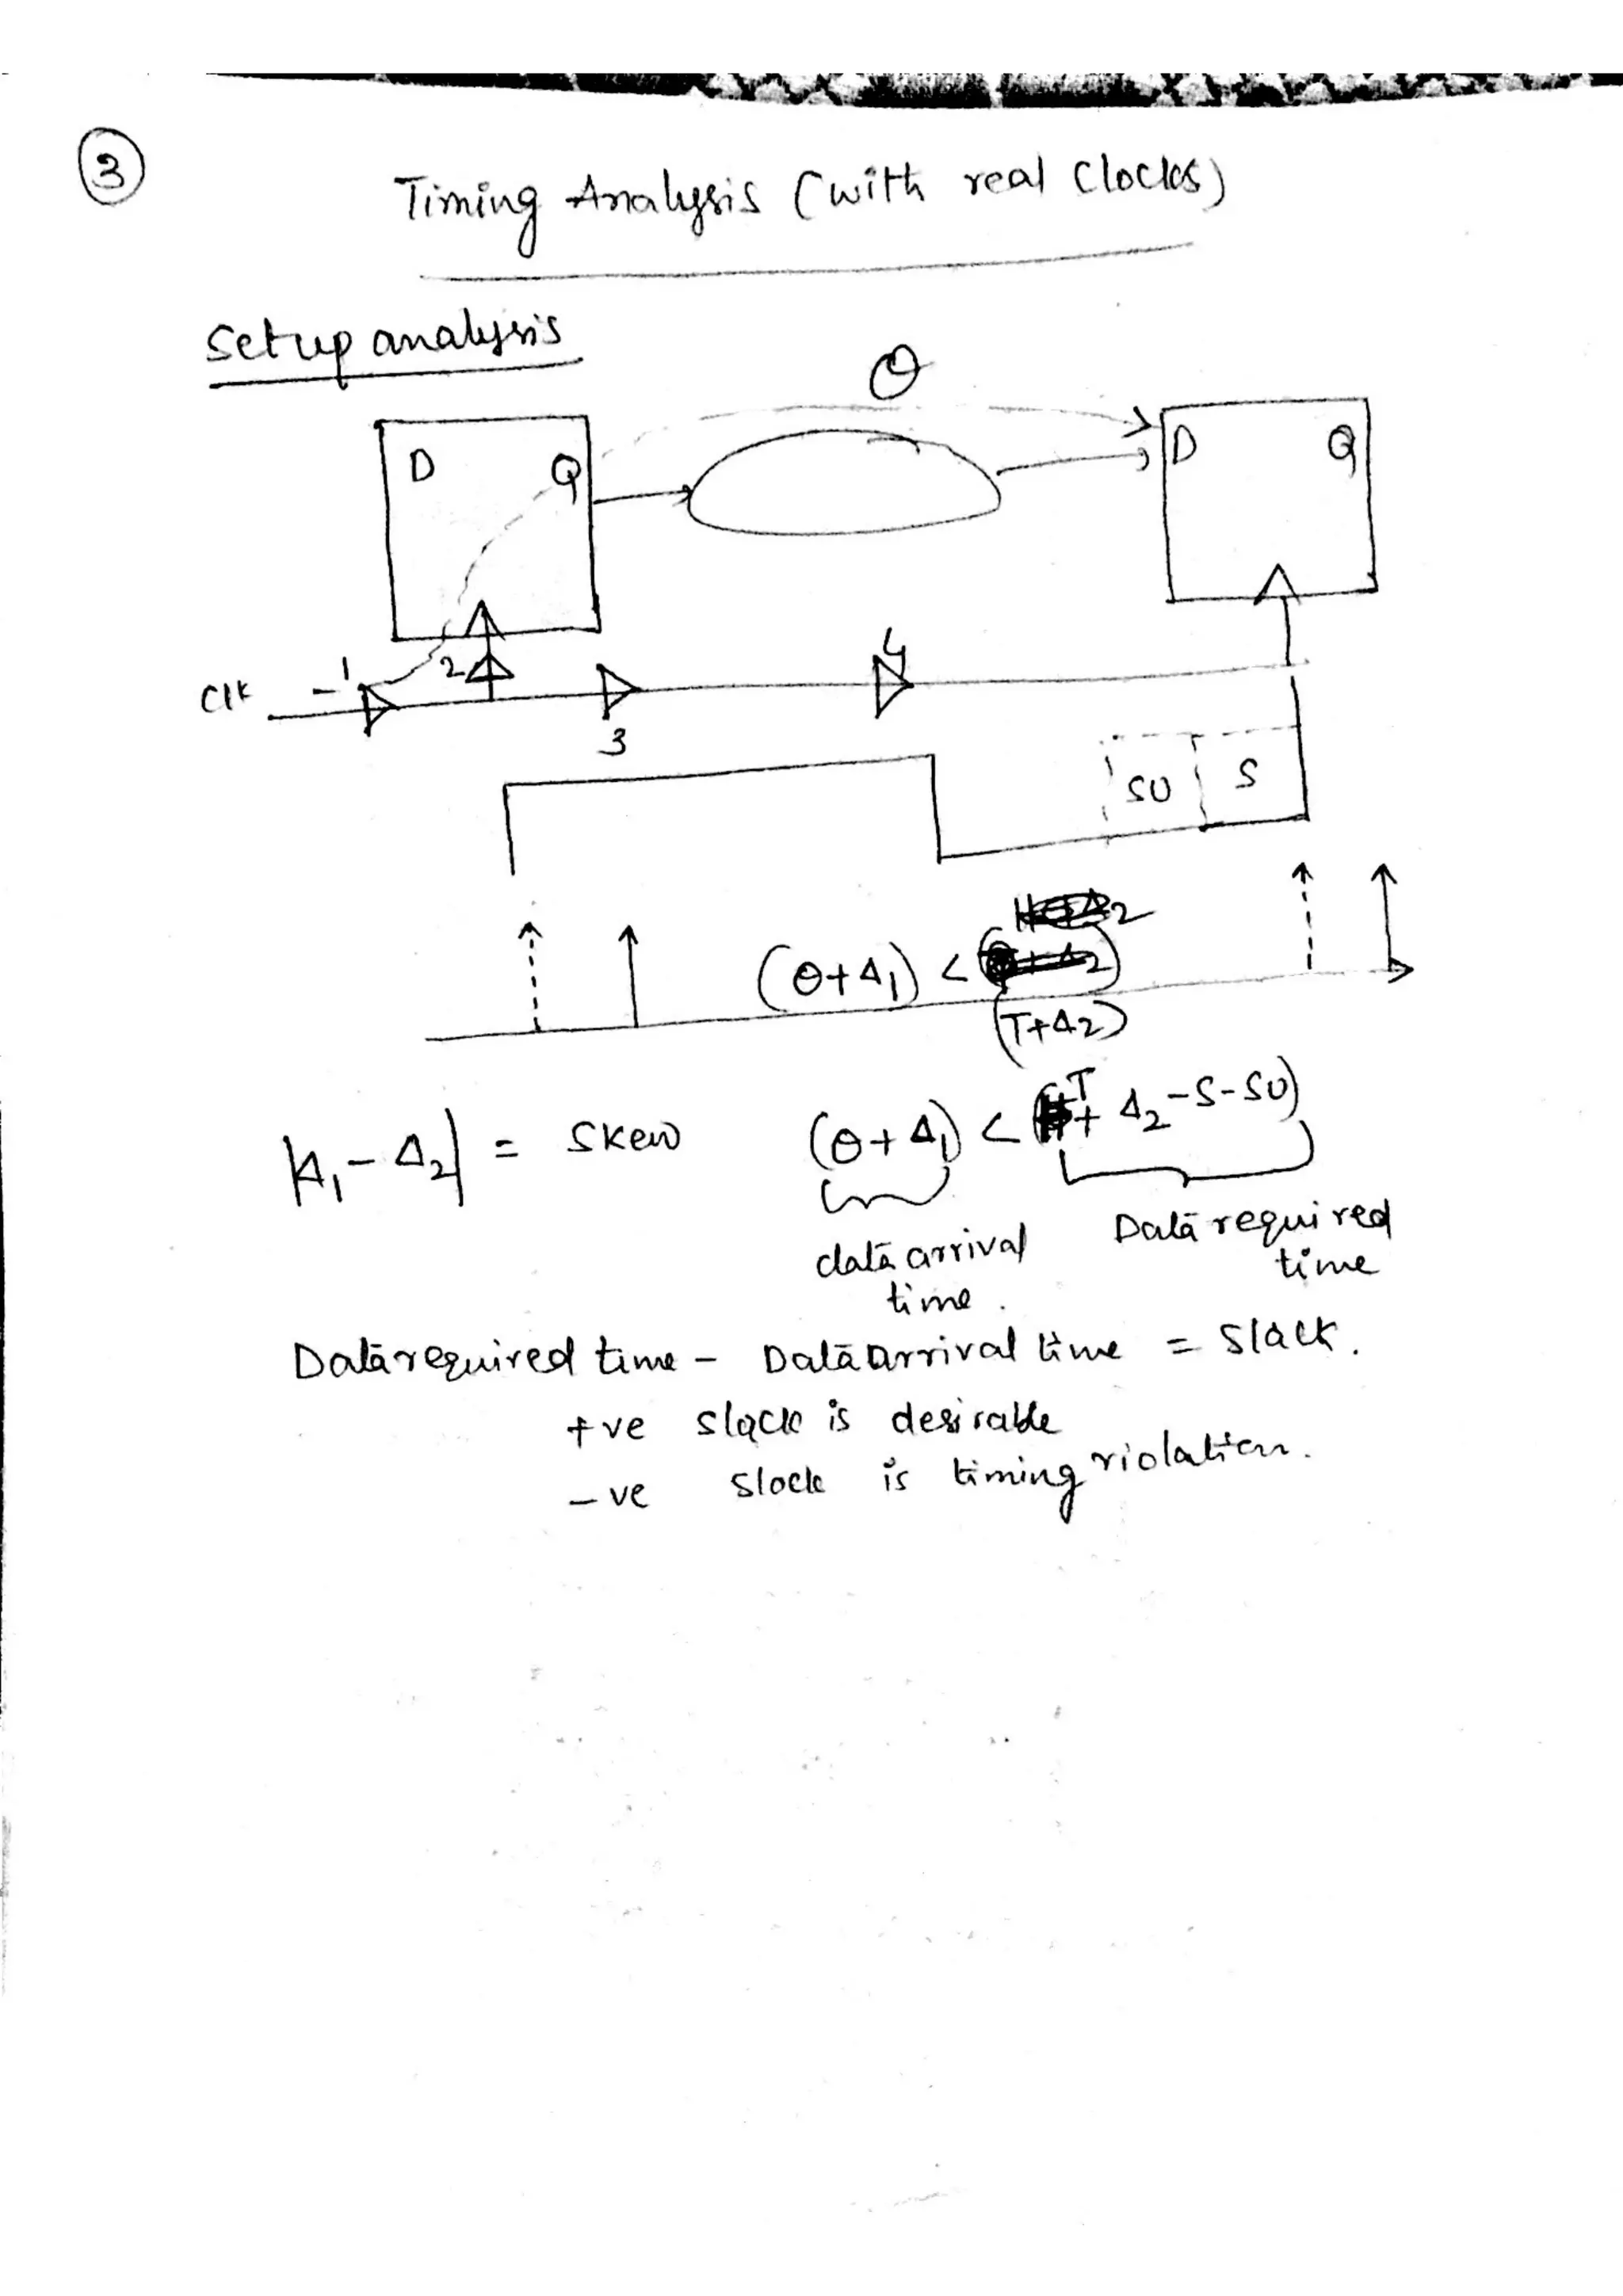 3
Timing Analysis (with real Clocks)
Setup analysis
θ
D Q
D Q
Clk
1
2
3
4
SU S
(θ+Δ1) <
(T+Δ2)
|Δ1-Δ2| = Skew
(θ+Δ1) < (T+Δ2-S-SU)
data arrival
time.
Data required
time
Data required time - Data arrival time = Slack.
+ve slack is desirable
-ve slack is timing violation.